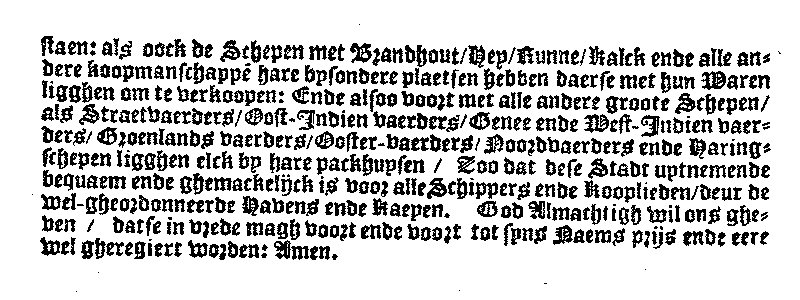 staen: als oock de Schepen met Brandhout/Hey/Runne/Kalck ende alle an-
dere koopmanschappē hare bysondere plaetsen hebben daerse met hun Waren
ligghen om te verkoopen: Ende alsoo voort met alle andere groote Schepen/
als Straetvaerders/Oost-Indien vaerders/Genee ende West-Indien vaer-
ders/ Groenlands vaerders/Ooster-vaerders/Noordvaerders ende Haring-
schepen ligghen elck by hare packhuysen / Zoo dat dese Stadt uytnemende
bequaem ende ghemackelijck is voor alle Schippers ende Kooplieden/deur de
wel-gheordonneerde Havens ende Kaepen. God Almachtigh wil ons ghe-
ven / datse in vrede magh voort ende voort tot syns Naems prijs ende eere
wel gheregiert worden: Amen.